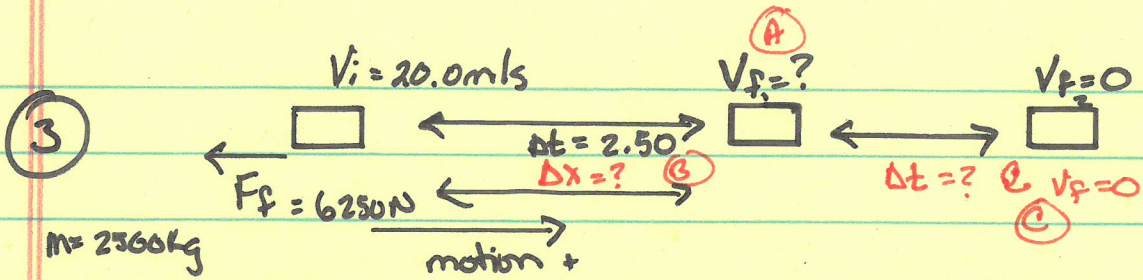 A
Vi = 20.0m/s
Vf₁=?
Vf₂=0
3
Δt = 2.50
Δx = ?
B
Δt = ?
@ Vf=0
C
Ff = 6250N
m= 2500kg
motion +